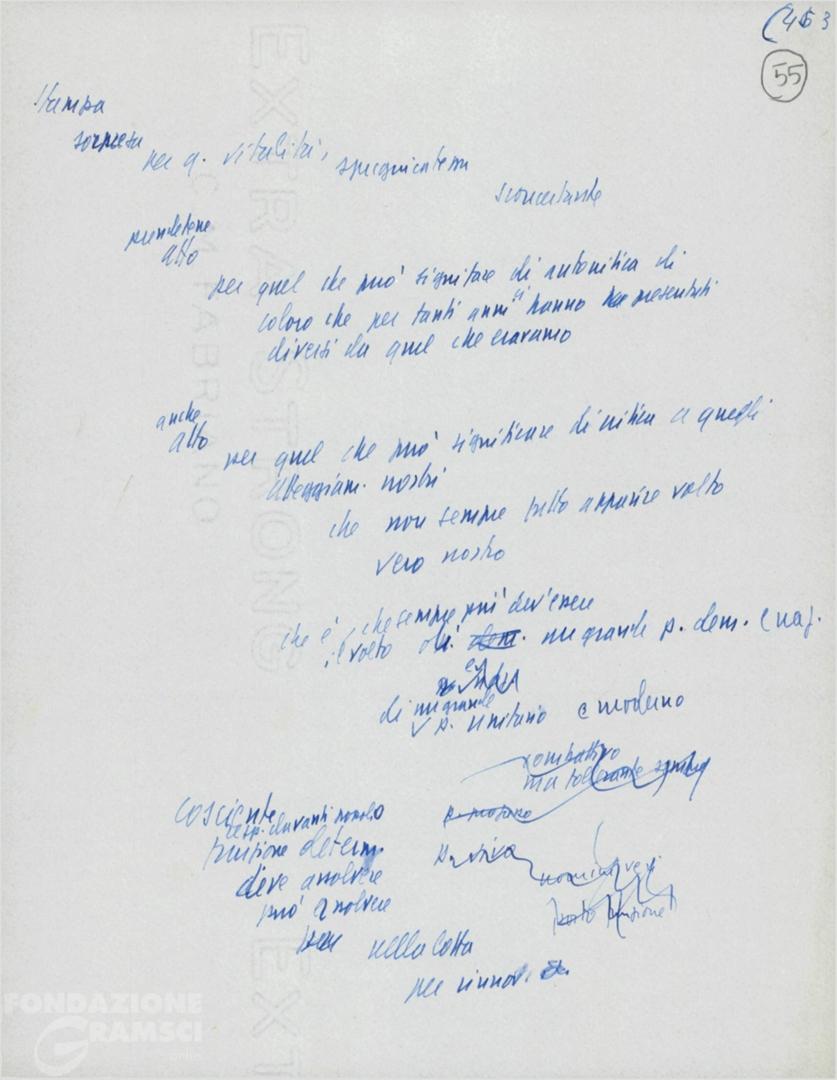 453
55
Stampa
sorpresa
per q. vitalità,
sconcertante
prendetene
atto
per quel che può signifare di autocritica di
coloro che per tanti anni ci hanno presentati
diversi da quel che eravamo
anche
atto
per quel che può significare di critica a quegli
atteggiam. nostri
che non sempre fatto apparire volto
vero nostro
che è, che sempre più dev'essere
il volto di dem. un grande p. dem. e naz.
di un grande
p. unitario e moderno
combattivo
ma tollerante
cosciente
resp. davanti popolo
funzione determ.
p. viva
deve assolvere
può assolvere
nella lotta
per rinnov.
EXTRA STRONG
C.M. FABRIANO
EXT
FONDAZIONE
GRAMSCI